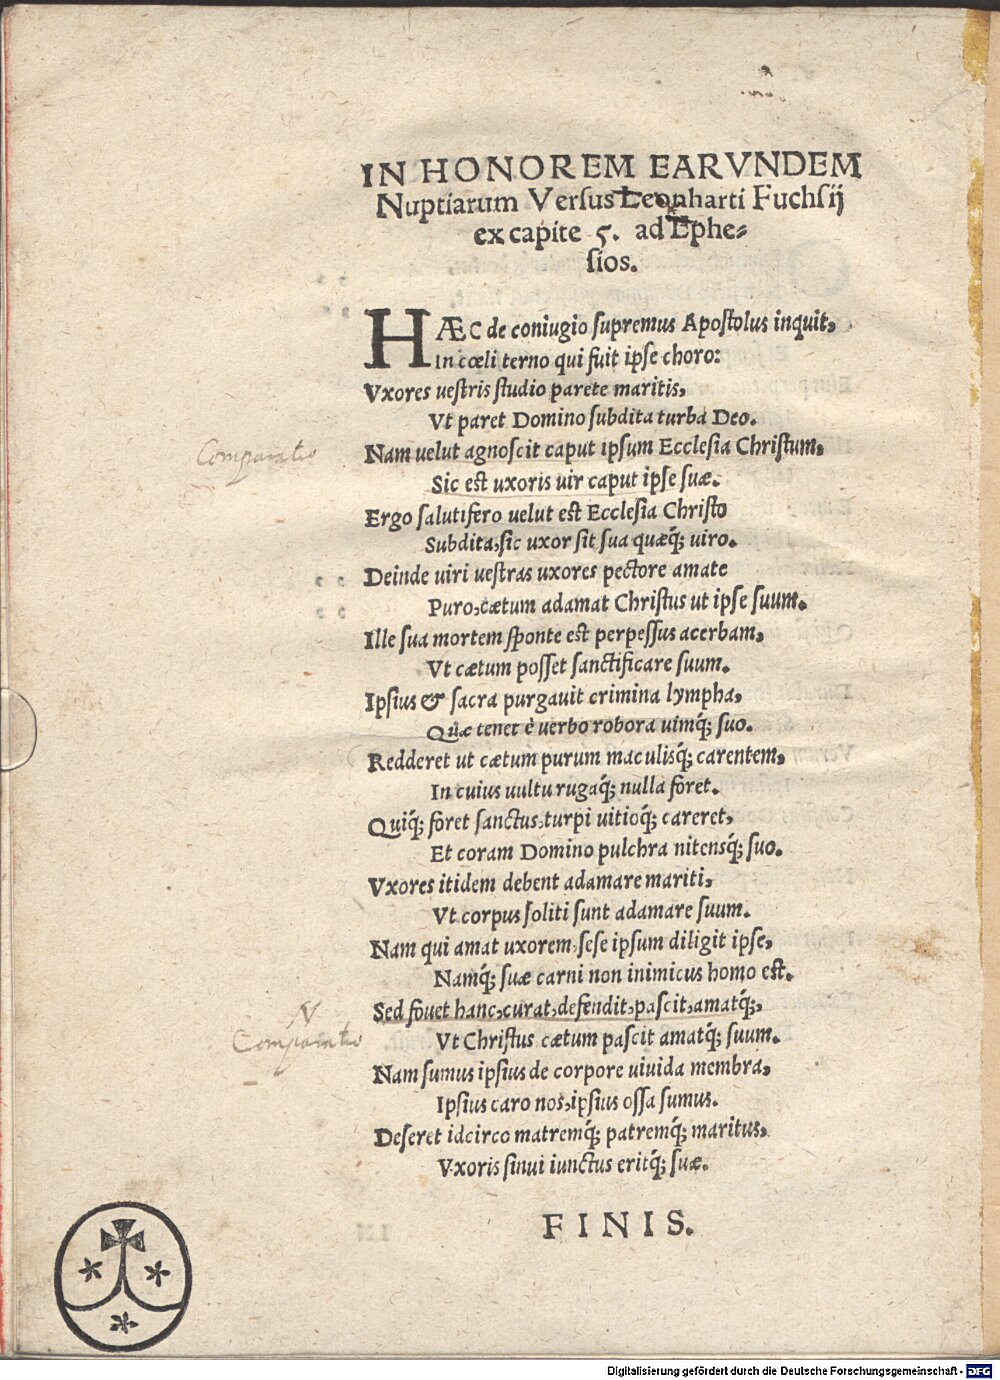 IN HONOREM EARVNDEM
Nuptiarum Verſus Leonharti Fuchſij
ex capite 5. ad Ephe⸗
ſios.
HÆC de coniugio ſupremus Apoſtolus inquit,
In cœli terno qui fuit ipſe choro:
Vxores ueſtris ſtudio parete maritis,
Vt paret Domino ſubdita turba Deo.
Comparatio
Nam uelut agnoſcit caput ipſum Eccleſia Chriſtum,
Sic eſt uxoris uir caput ipſe ſuæ.
Ergo ſalutifero uelut eſt Eccleſia Chriſto
Subdita, ſic uxor ſit ſua quæq́; uiro.
Deinde uiri ueſtras uxores pectore amate
Puro, cætum adamat Chriſtus ut ipſe ſuum.
Ille ſua mortem ſponte eſt perpeſſus acerbam,
Vt cætum poſſet ſanctificare ſuum.
Ipſius & ſacra purgauit crimina lympha,
Quæ tenet è uerbo robora uimq́; ſuo.
Redderet ut cætum purum maculisq́; carentem,
In cuius uultu rugaq́; nulla foret.
Quiq́; foret ſanctus, turpi uitioq́; careret,
Et coram Domino pulchra nitensq́; ſuo.
Vxores itidem debent adamare mariti,
Vt corpus ſoliti ſunt adamare ſuum.
Nam qui amat uxorem, ſeſe ipſum diligit ipſe,
Namq́; ſuæ carni non inimicus homo eſt.
Sed fouet hanc, curat, defendit, paſcit, amatq́;,
Comparatio
Vt Chriſtus cætum paſcit amatq́; ſuum.
Nam ſumus ipſius de corpore uiuida membra,
Ipſius caro nos, ipſius oſſa ſumus.
Deſeret idcirco matremq́; patremq́; maritus,
Vxoris ſinui iunctus eritq́; ſuæ.
FINIS.
Digitalisierung gefördert durch die Deutsche Forschungsgemeinschaft - DFG